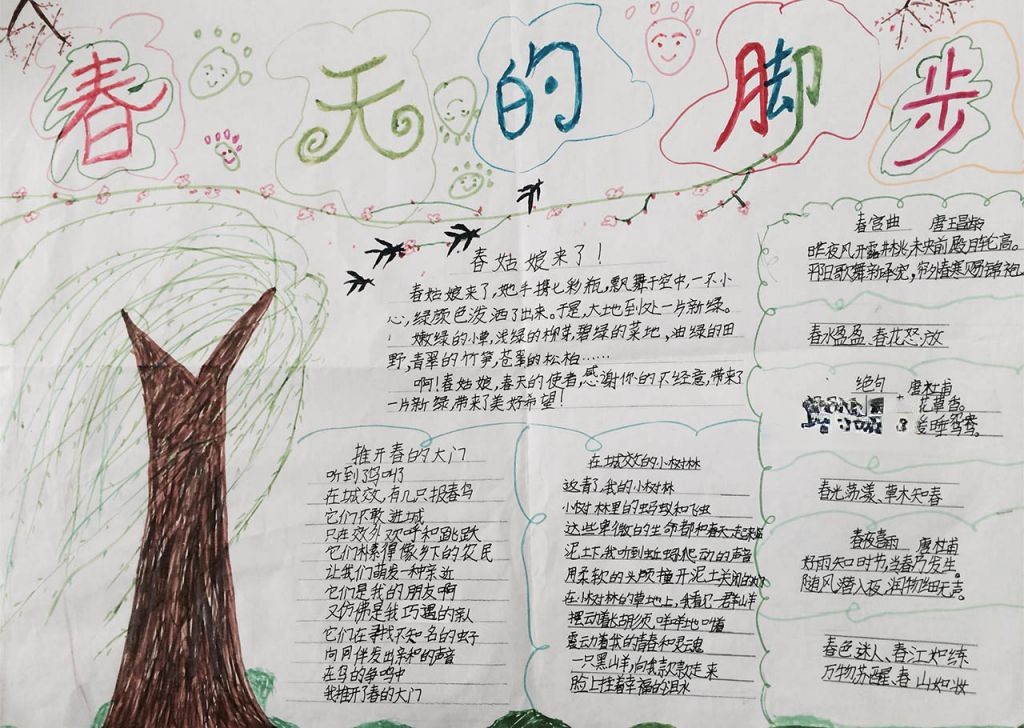 春天的脚步
春姑娘来了！
春姑娘来了，她手携七彩瓶，飘舞于空中，一不小
心，绿颜色泼洒了出来。于是，大地到处一片新绿。
嫩绿的小草，浅绿的柳芽，碧绿的菜地，油绿的田
野，青翠的竹笋，苍翠的松柏……
啊！春姑娘，春天的使者，感谢你的不经意，带来了
一片新绿，带来了美好希望！
推开春的大门
听到了鸟叫了
在城效，有几只报春鸟
它们不敢进城
只在效外欢呼和跳跃
它们朴素得像乡下的农民
让我们萌发一种亲近
它们是我的朋友啊
又仿佛是我巧遇的亲人
它们在寻找不知名的虫子
向同伴发出亲和的声音
在鸟的争鸣中
我推开了春的大门
在城效的小树林
这青了我的小树林
小树林里的蚂蚁和飞虫
这些卑微的生命都和春天一起来临
泥土下，我听到蚯蚓爬动的声音
用柔软的头颅撞开泥土关闭的
在小树林的草地上，我看见一群山羊
摆动着胡须，咩咩地叫着
震动着我的青春和灵魂
一只黑山羊，向我款款走来
脸上挂着幸福的泪水
春宫曲 唐王昌龄
昨夜风开露井桃，未央前殿月轮高。
平阳歌舞新承宠，帘外春寒赐锦袍
春水盈盈、春花怒放
绝句 唐杜甫
花草香。
睡鸳鸯。
春光荡漾、草木知春
春夜喜雨 唐杜甫
好雨知时节，当春乃发生。
随风潜入夜，润物细无声。
春色迷人、春江如练
万物苏醒、春山如妆